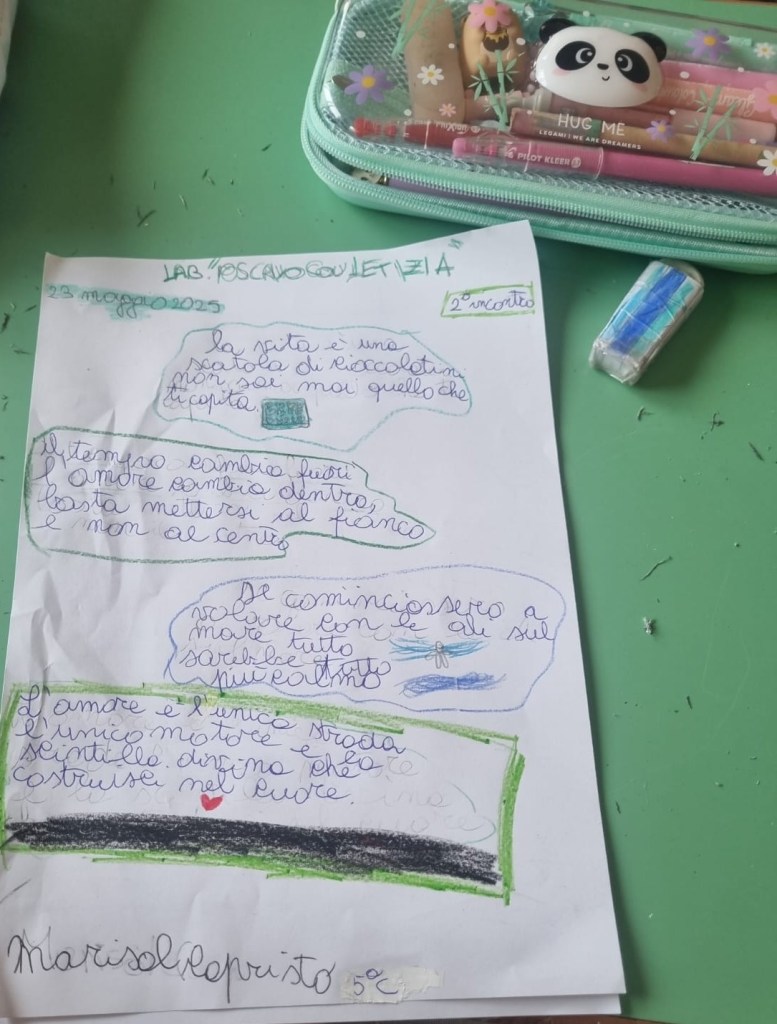 HUG ME
LEGAMI | WE ARE DREAMERS
PILOT KLEER
LAB. "POSCAVOCONLETIZIA"
23 maggio 2025
2° incontro
la vita è una
scatola di cioccolatini
non sai mai quello che
ti capita.
il tempo cambia fuori
l'amore cambia dentro,
basta mettersi al fianco
e non al centro
Se cominciassero a
volare con le ali sul
mare tutto
sarebbe tutto
più calmo
L'amore è l'unica strada
l'unico motore e la
scintilla divina che
costruisci nel cuore.
Marisol Capristo 5°C